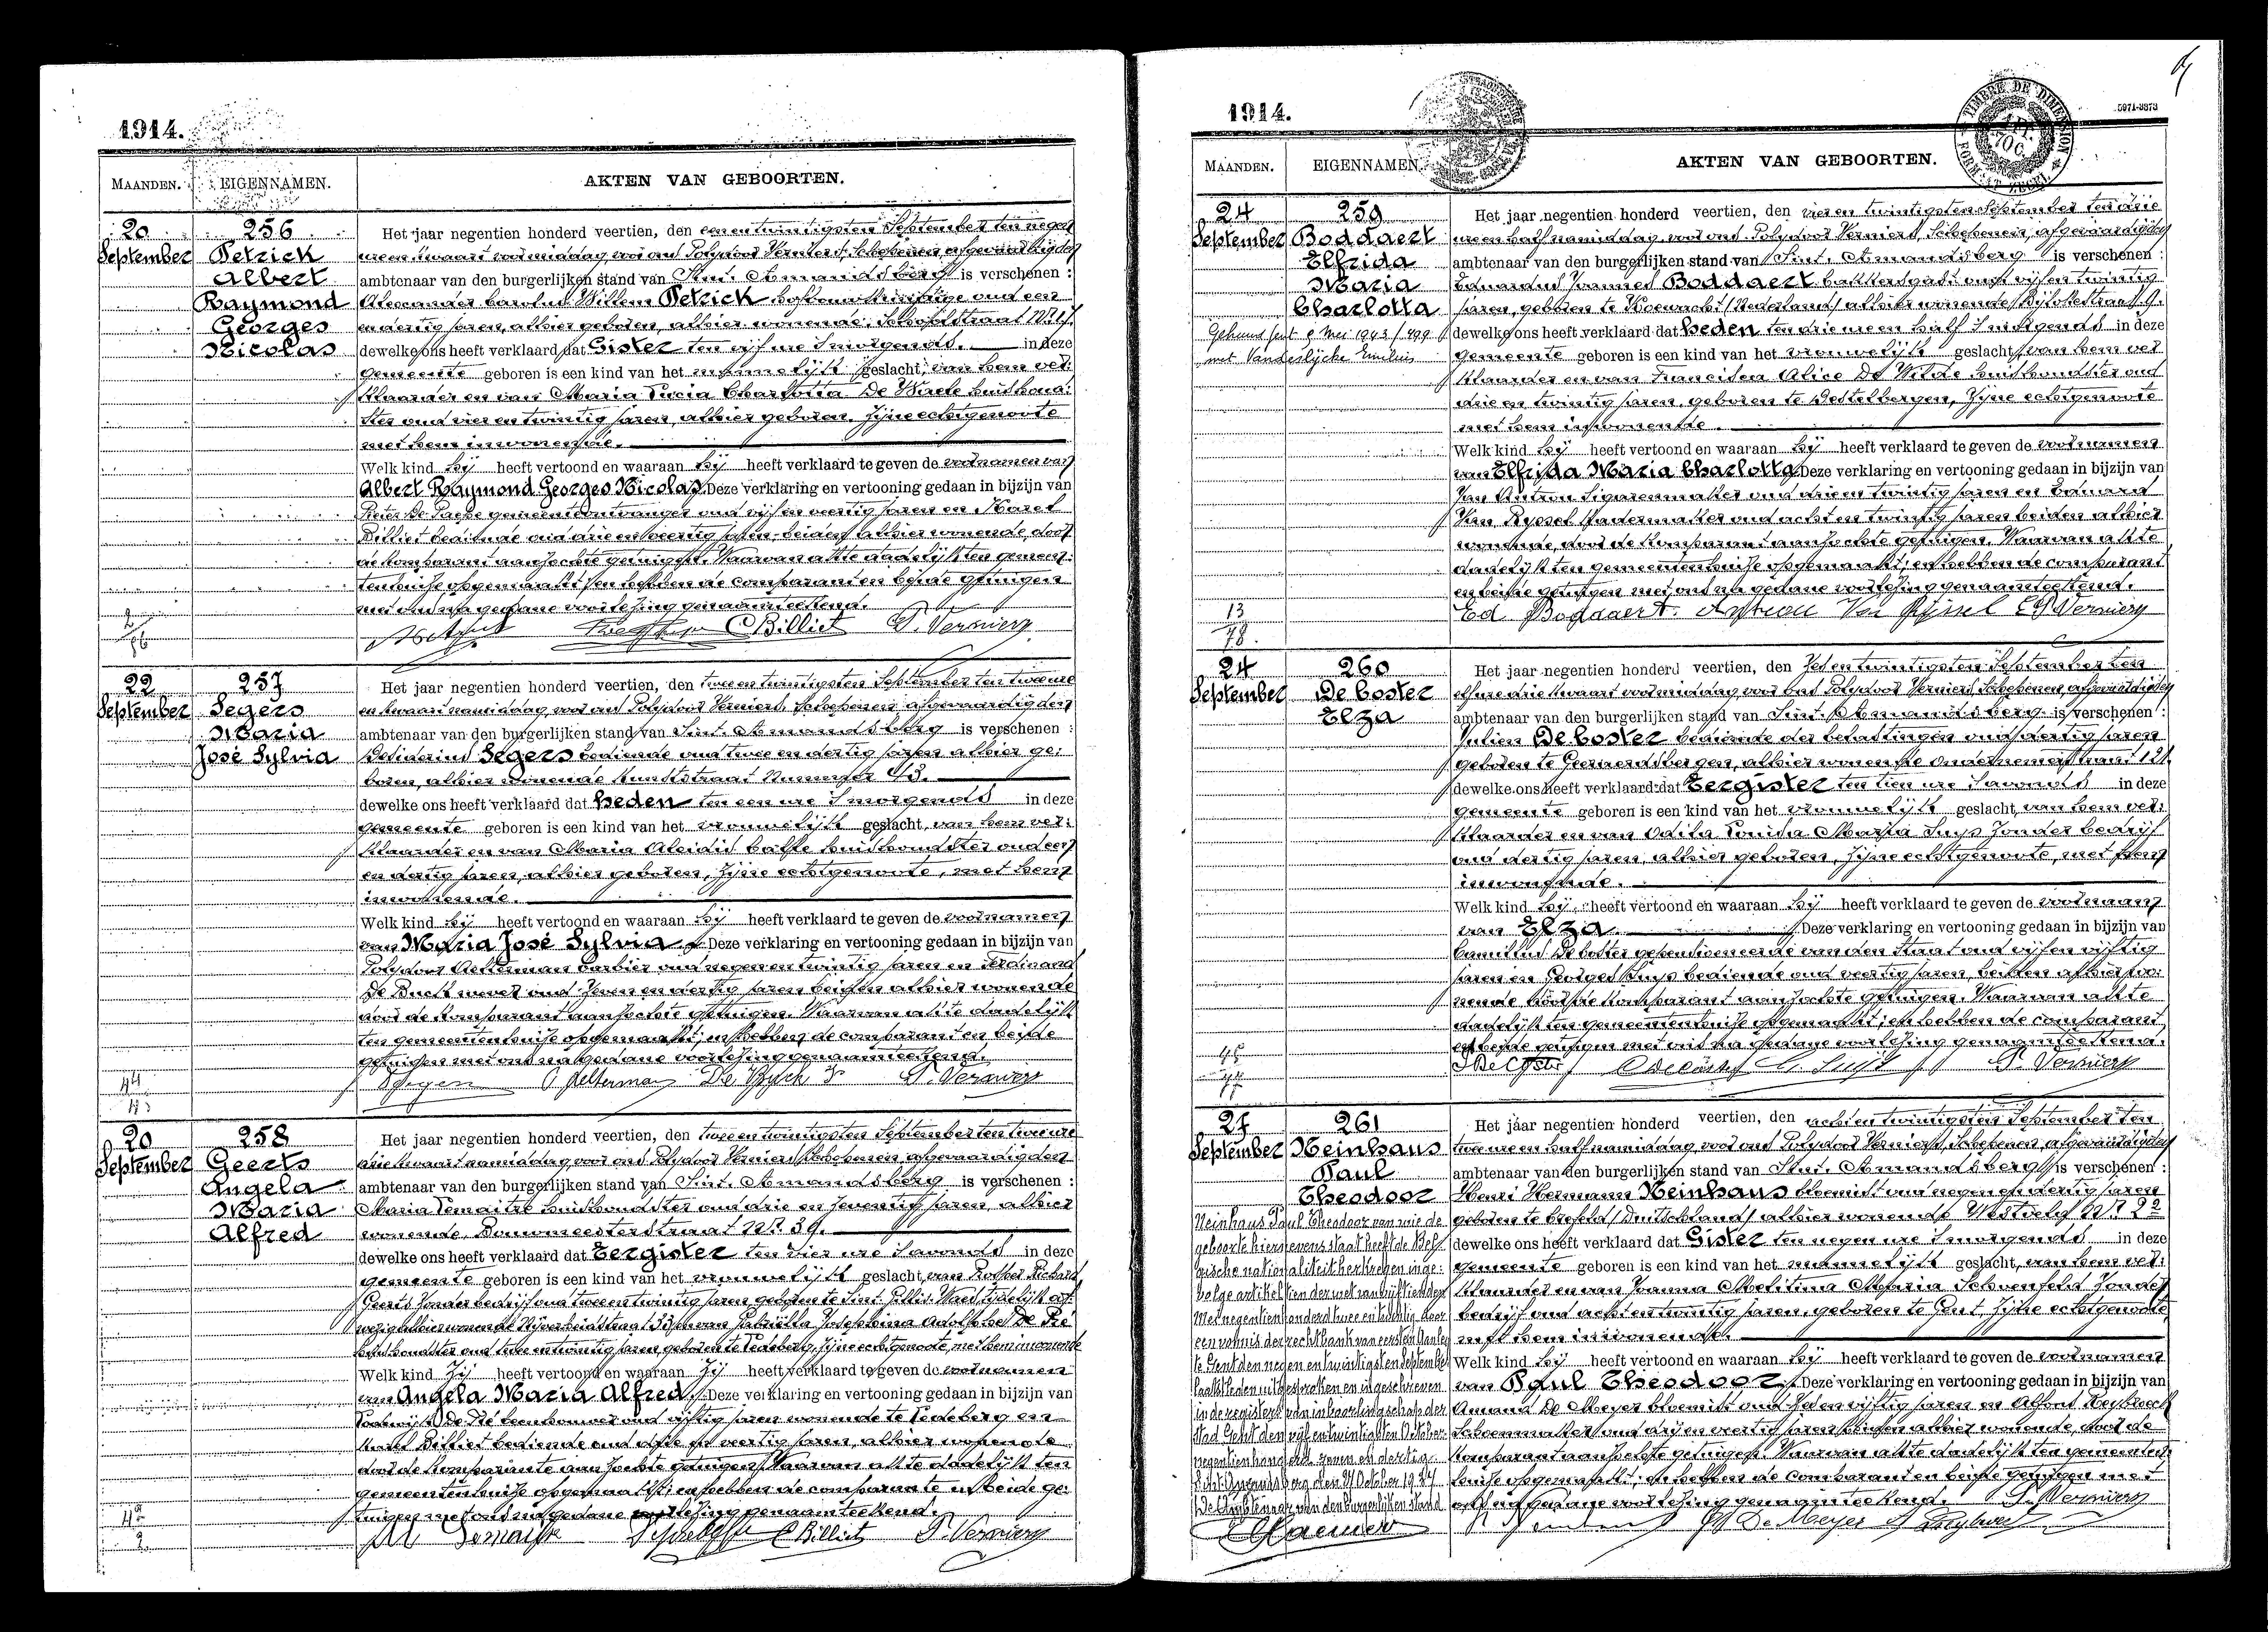 1914.
MAANDEN. EIGENNAMEN. AKTEN VAN GEBOORTEN.
20 September
256
Petrick
Albert
Raymond
Georges
Nicolas
Het jaar negentien honderd veertien, den een en twintigsten September ten negen
ure en kwaart voormiddag, voor ons Polydoor Verniers, Schepenen, afgevaardigden
ambtenaar van den burgerlijken stand van Sint. Amandsberg is verschenen :
Alexander Carolus Willem Petrick oud een
en dertig jaren, alhier geboren, alhier wonende,
dewelke ons heeft verklaard dat Gister ten vijf ure 's morgends. in deze
gemeente geboren is een kind van het mannelijk geslacht, van hem ver:
klaarder en van Maria Lucia Charlotta De Waele huishoud:
ster oud vier en twintig jaren, alhier geboren, Zijne echtgenoote
met hem inwonende.
Welk kind hij heeft vertoond en waaraan hij heeft verklaard te geven de voornamen van
Albert Raymond Georges Nicolas. Deze verklaring en vertooning gedaan in bijzijn van
Pieter De Paepe gemeenteontvanger oud vijf en veertig jaren en Karel
Billiet bediende oud drie en veertig jaren, beiden alhier wonende, door
de komparant aanzochte getuigen. Waarvan akte dadelijk ten gemeen:
tenhuise opgemaakt; en hebben de comparant en beide getuigen
met ons na gedane voorlezing genaamteekend.
C Billiet P. Verniers
22 September
257
Segers
Maria
José Sylvia
Het jaar negentien honderd veertien, den twee en twintigsten September ten twee ure
en kwaart namiddag, voor ons Polydoor Verniers, Schepenen, afgevaardigden
ambtenaar van den burgerlijken stand van Sint. Amandsberg is verschenen :
Desiderius Segers bediende oud twee en dertig jaren, alhier ge:
boren, alhier wonende Kunststraat Nummer 43.
dewelke ons heeft verklaard dat heden ten een ure 's morgends in deze
gemeente geboren is een kind van het vrouwelijk geslacht, van hem ver:
klaarder en van Maria Aleidis huishoudster oud een
en dertig jaren, alhier geboren, Zijne echtgenoote, met hem
inwonende.
Welk kind hij heeft vertoond en waaraan hij heeft verklaard te geven de voornamen
van Maria José Sylvia. Deze verklaring en vertooning gedaan in bijzijn van
Polydoor Aelterman barbier oud negen en twintig jaren en Ferdinand
De Buck wever oud zeven en veertig jaren beiden alhier wonende
door de komparant aanzochte getuigen. Waarvan akte dadelijk
ten gemeentenhuise opgemaakt; en hebben de comparant en beide
getuigen met ons na gedane voorlezing genaamteekend.
Segers P Aelterman De Buck F P. Verniers
20 September
258
Geerts
Angela
Maria
Alfred
Het jaar negentien honderd veertien, den twee en twintigsten September ten twee ure
drie kwaart namiddag, voor ons Polydoor Verniers, Schepenen, afgevaardigden
ambtenaar van den burgerlijken stand van Sint. Amandsberg is verschenen :
Maria Lemaitre huishoudster oud drie en zeventig jaren, alhier
wonende, Bouwmeesterstraat Nr. 39.
dewelke ons heeft verklaard dat Eergister ten vier ure 's avonds in deze
gemeente geboren is een kind van het vrouwelijk geslacht, van Richard
Geerts zonder bedrijf oud twee en twintig jaren geboren te Sint. Gillis. Waes, tijdelijk af:
wezig alhier wonende en van Gabriella Josephina Adolphina De Pré
huishoudster oud twee en twintig jaren geboren te Ledeberg, zijne echtgenoote, met hem inwonende
Welk kind Zij heeft vertoond en waaraan Zij heeft verklaard te geven de voornamen
van Angela Maria Alfred. Deze verklaring en vertooning gedaan in bijzijn van
Lodewijk De Pré oud vijftig jaren wonende te Ledeberg en
Karel Billiet bediende oud drie en veertig jaren, alhier wonende
door de komparante aanzochte getuigen. Waarvan akte dadelijk ten
gemeentenhuise opgemaakt; en hebben de comparante en beide ge:
tuigen met ons na gedane voorlezing genaamteekend.
C Billiet P. Verniers
1914.
TIMBRE DE DIMENSION
5971-3373
MAANDEN. EIGENNAMEN. AKTEN VAN GEBOORTEN.
24 September
259
Boddaert
Elfrida
Maria
Charlotta
Gehuwd Gent 8 Mei 1943
met Vanderslijcke Emilius
Het jaar negentien honderd veertien, den vier en twintigsten September ten drie
ure en half namiddag, voor ons Polydoor Verniers, Schepenen, afgevaardigden
ambtenaar van den burgerlijken stand van Sint. Amandsberg is verschenen :
Eduardus Joannes Boddaert oud vijf en twintig
jaren, geboren te Koewacht (Nederland) alhier wonende
dewelke ons heeft verklaard dat heden ten drie ure en half 's morgends in deze
gemeente geboren is een kind van het vrouwelijk geslacht, van hem ver:
klaarder en van Francisca Alice De Wilde huishoudster oud
drie en twintig jaren, geboren te Destelbergen, Zijne echtgenoote
met hem inwonende.
Welk kind hij heeft vertoond en waaraan hij heeft verklaard te geven de voornamen
van Elfrida Maria Charlotta. Deze verklaring en vertooning gedaan in bijzijn van
Jan Antron Sigarenmaker oud drie en twintig jaren en Eduard
Van Ryssel kadermaker oud acht en twintig jaren beiden alhier
wonende, door de komparant aanzochte getuigen. Waarvan akte
dadelijk ten gemeentenhuise opgemaakt; en hebben de comparant
en beide getuigen met ons na gedane voorlezing genaamteekend.
13
78.
Ed. Boddaert. Antron Van Ryssel Ed P Verniers
24 September
260
De Coster
Elza
Het jaar negentien honderd veertien, den Zes en twintigsten September ten
elf ure drie kwaart voormiddag, voor ons Polydoor Verniers, Schepenen, afgevaardigden
ambtenaar van den burgerlijken stand van Sint. Amandsberg is verschenen :
Julien De Coster bediende der belastingen oud veertig jaren
geboren te Geeraardsbergen, alhier wonende
dewelke ons heeft verklaard dat Eergister ten tien ure 's avonds in deze
gemeente geboren is een kind van het vrouwelijk geslacht, van hem ver:
klaarder en van Odila Louisa Maria Suys zonder bedrijf
oud dertig jaren, alhier geboren, Zijne echtgenoote, met hem
inwonende.
Welk kind hij heeft vertoond en waaraan hij heeft verklaard te geven de voornaam
van Elza. Deze verklaring en vertooning gedaan in bijzijn van
Camillus De Coster gepensioneerde van den Staat oud vijf en vijftig
jaren en Georges Suys bediende oud veertig jaren, beiden alhier wo:
nende door de komparant aanzochte getuigen. Waarvan akte
dadelijk ten gemeentenhuise opgemaakt; en hebben de comparant
en beide getuigen met ons na gedane voorlezing genaamteekend.
P. Verniers
27 September
261
Meinhaus
Paul
Theodoor
Meinhaus Paul Theodoor van wie de
geboorte hiernevens staat heeft de Bel
gische nationaliteit verkregen inge:
volge artikel tien der wet van vijftienden
Mei negentienhonderd twee en twintig door
een vonnis der rechtbank van eersten aanleg
te Gent den negen en twintigsten September
laatstleden uitgesproken en ingeschreven
in de registers van inboorlingschap der
stad Gent den vijf en twintigsten October
negentienhonderd zeven en dertig.
Sint Amandsberg den October 1937
De Ambtenaar van den burgerlijken stand
Het jaar negentien honderd veertien, den acht en twintigsten September ten
twee ure en half namiddag, voor ons Polydoor Verniers, Schepenen, afgevaardigden
ambtenaar van den burgerlijken stand van Sint. Amandsberg is verschenen :
Henri Hermann Meinhaus bloemist oud negen en dertig jaren
geboren te Crefeld (Duitschland) alhier wonende Westveld
dewelke ons heeft verklaard dat Gister ten negen ure 's morgends in deze
gemeente geboren is een kind van het mannelijk geslacht, van hem ver:
klaarder en van Joanna Melitina Maria Schoenfeld zonder
bedrijf oud acht en twintig jaren geboren te Gent Zijne echtgenoote
met hem inwonende.
Welk kind hij heeft vertoond en waaraan hij heeft verklaard te geven de voornamen
van Paul Theodoor. Deze verklaring en vertooning gedaan in bijzijn van
Amand De Meyer bloemist oud zes en vijftig jaren en Alfons Reybroeck
Schoenmaker oud drij en veertig jaren beiden alhier wonende, door de
komparant aanzochte getuigen. Waarvan akte dadelijk ten gemeenten:
huise opgemaakt; en hebben de comparant en beide getuigen met
ons na gedane voorlezing genaamteekend. P. Verniers
De Meyer